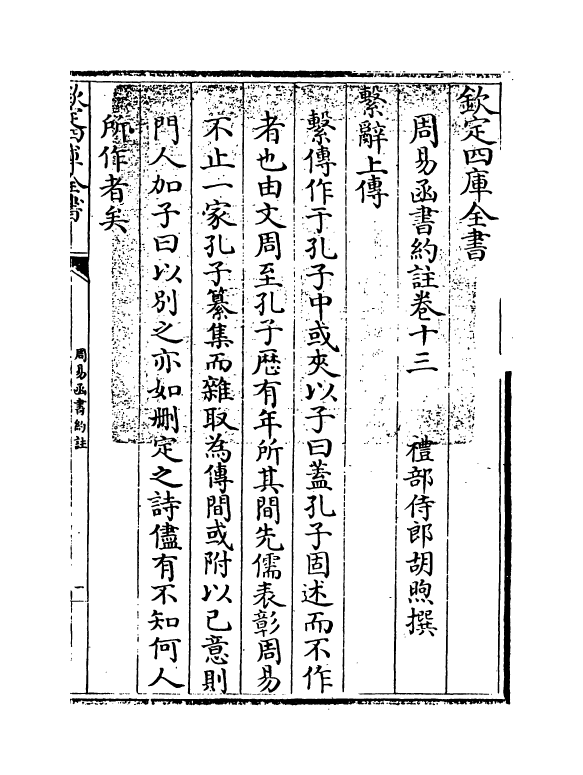 欽定四庫全書
周易函書約註卷十三　　禮部侍郎胡煦撰
繫辭上傳
繫傳作于孔子中或夾以子曰蓋孔子固述而不作
者也由文周至孔子歴有年所其間先儒表彰周易
不止一家孔子纂集而雜取為傳間或附以己意則
門人加子曰以别之亦如删定之詩儘有不知何人
所作者矣
欽定四庫全書
周易函書約註
一